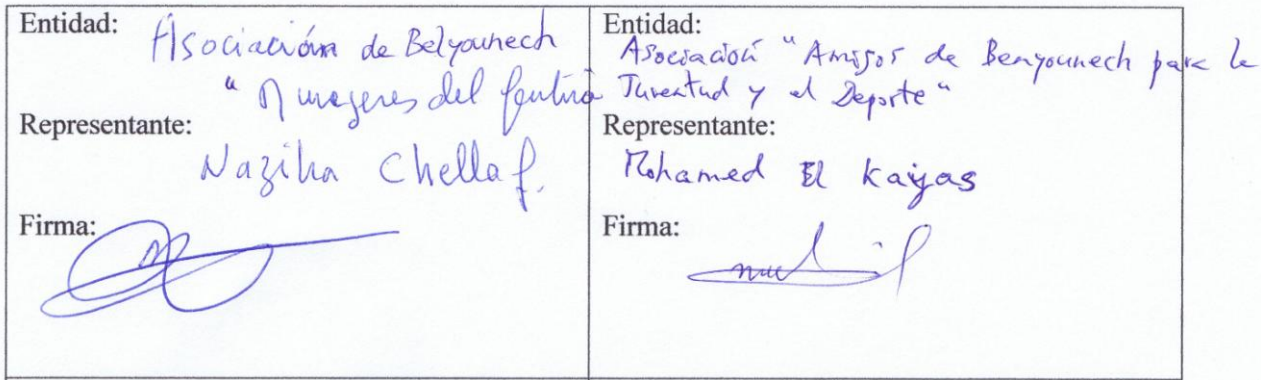 Entidad: Asociación de Belyounech
" Mugeres del
Representante:
Naziha Chellaf.
Firma:
Entidad:
Asociación "Amigos de Benyounech para la
Juventud y el Deporte"
Representante:
Mohamed El Kaiyas
Firma: